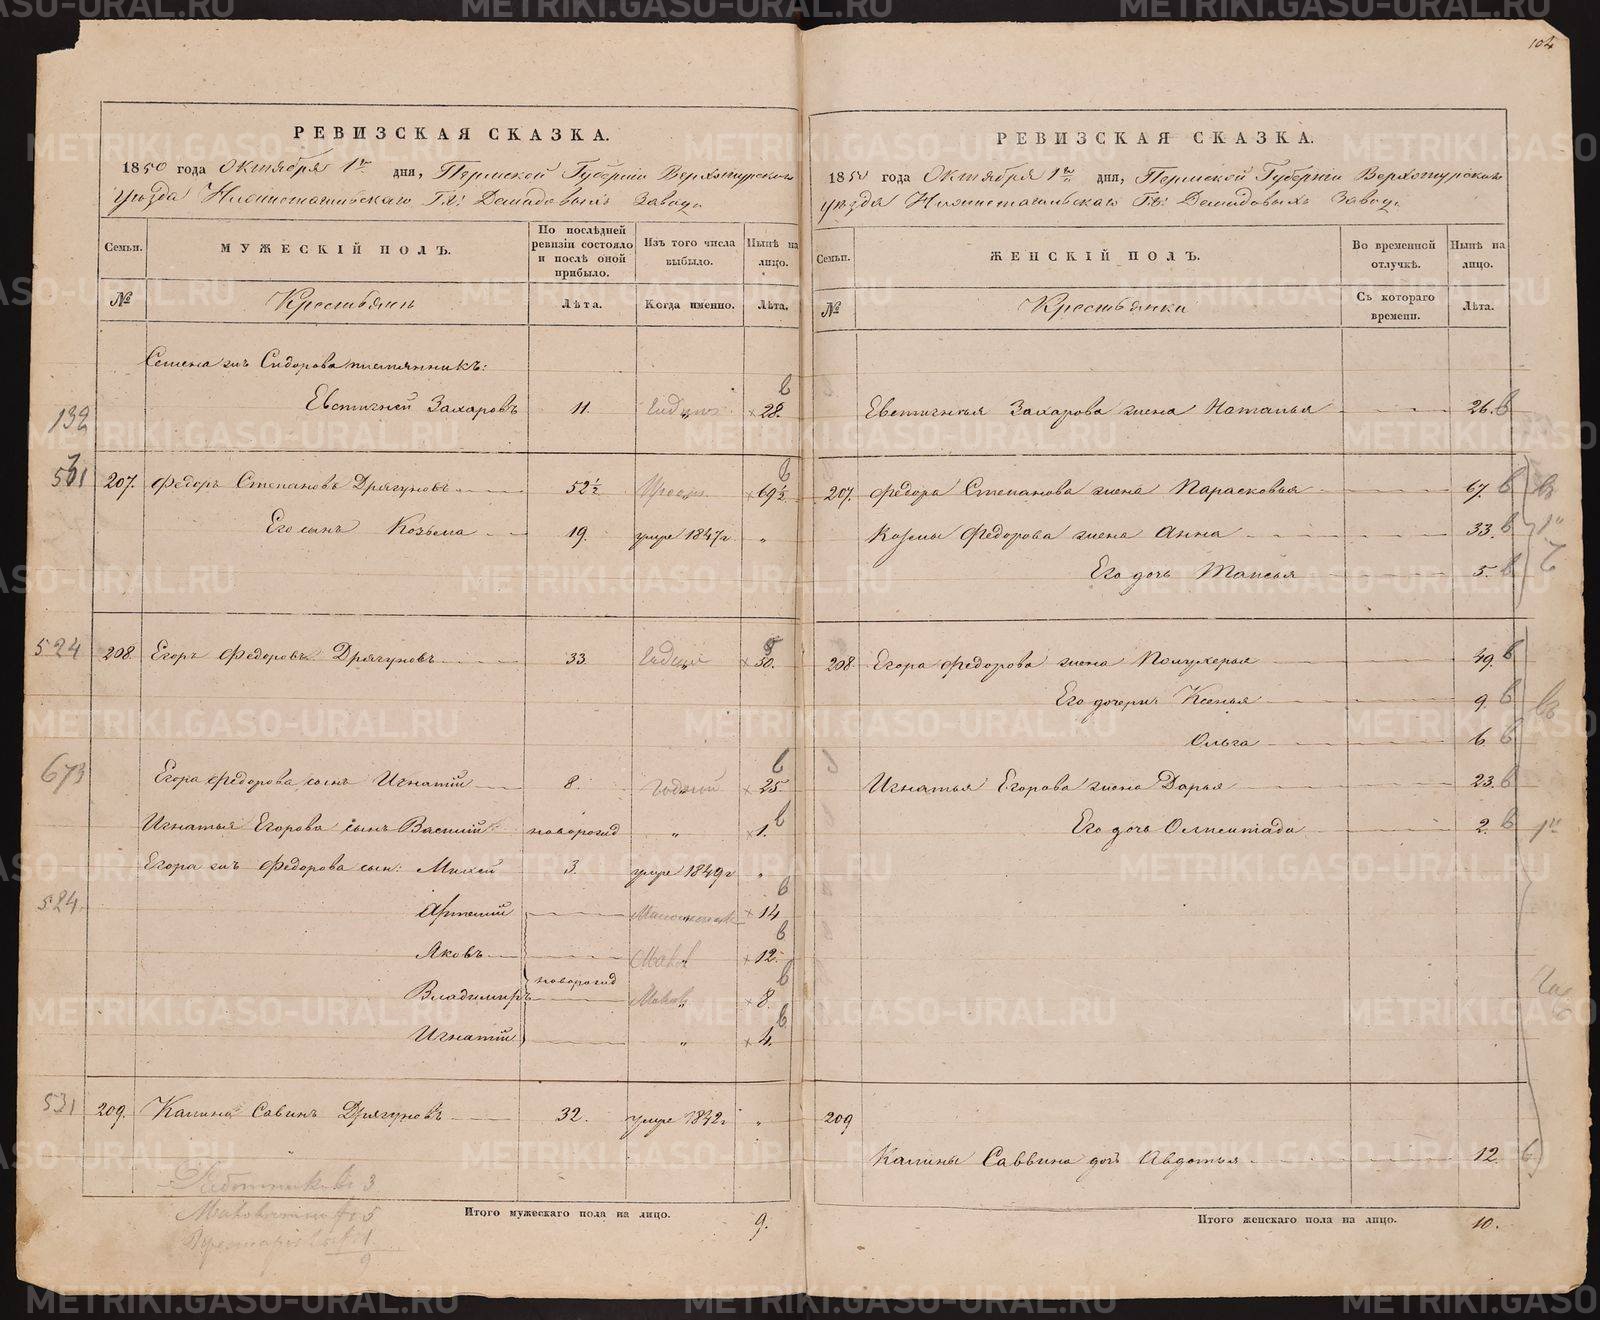 104
РЕВИЗСКАЯ СКАЗКА.
1850 года Октября 1го дня, Пермской Губерніи Верхотурскаго
уѣзда Нижнетагильскаго Гг: Демидовыхъ Завода
Семьи. МУЖЕСКІЙ ПОЛЪ. По послѣдней ревизіи состояло и послѣ оной прибыло. Изъ того числа выбыло. Нынѣ на лицо.
№ Крестьянъ Лѣта. Когда именно. Лѣта.
Семена жъ Сидорова племянникъ:
132 Евстигней Захаровъ 11. Годный 28.
501 207. Федоръ Степановъ Дрягуновъ 52½ 69½.
Его сынъ Козьма 19. умре 1847г „
524 208 Егоръ Федоровъ Дрягуновъ 33. 50.
673 Егора Федорова сынъ Игнатій 8. годный 25.
Игнатья Егорова сынъ Василій новорожд „ 1.
Егора жъ Федорова сын: Михей 3. умре 1849г „
524. Артемій 14
Яковъ 12.
новорожд
Владимиръ 8
Игнатій „ 4.
531 209. Калина Савинъ Дрягуновъ 32. умре 1842г „
3
5
1
9
Итого мужескаго пола на лицо. 9.
РЕВИЗСКАЯ СКАЗКА.
1850 года Октября 1го дня, Пермской Губерніи Верхотурскаго
уѣзда Нижнетагильскаго Гг: Демидовыхъ Завода
Семьи. ЖЕНСКІЙ ПОЛЪ. Во временной отлучкѣ. Нынѣ на лицо.
№ Крестьянки Съ котораго времени. Лѣта.
Евстигнея Захарова жена Наталья 26. в
207. Федора Степанова жена Парасковья 67. в
Козмы Федорова жена Анна 33. в
Его дочь Таисья 5. в
208 Егора Федорова жена Полухерья 49. в
Его дочери: Ксенья 9. в
Ольга 6 в
Игнатья Егорова жена Дарья 23. в
Его дочь Олимпіада 2. в
209
Калины Саввина дочь Авдотья 12. в
Итого женскаго пола на лицо. 10.
METRIKI.GASO-URAL.RU